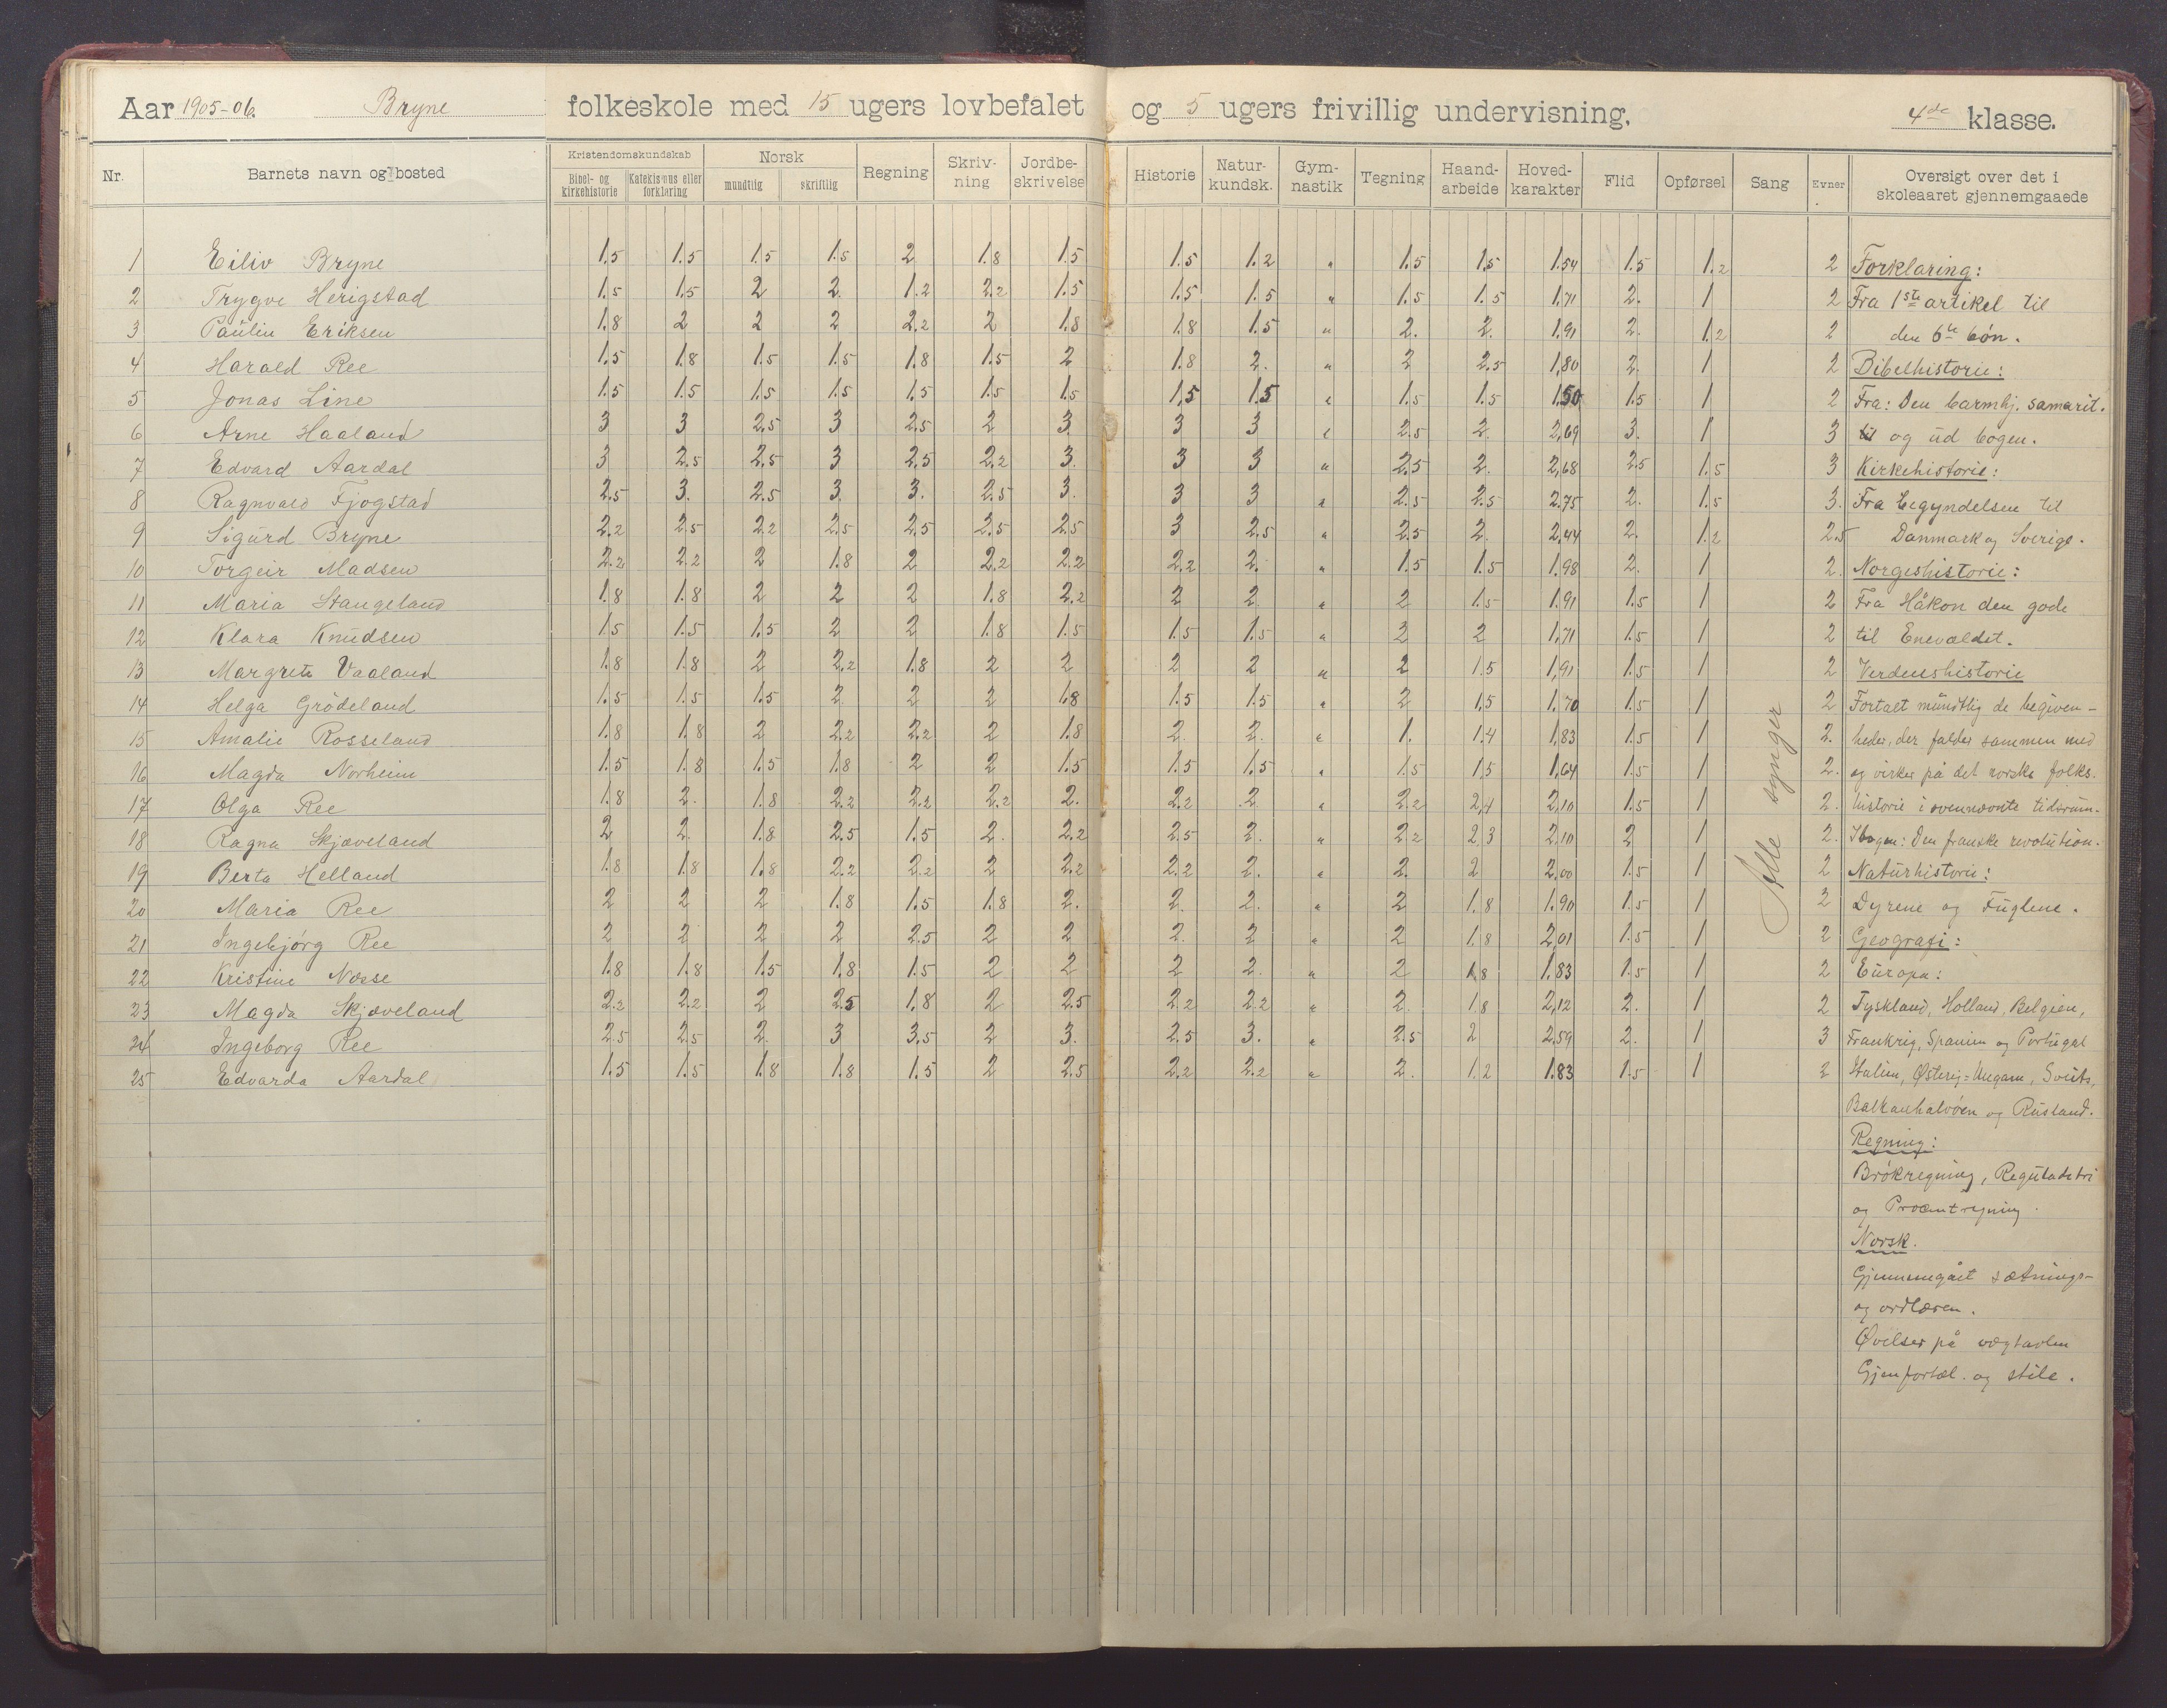 Aar 1905-06. Bryne folkeskole med 15 ugers lovbefalet og 5 ugers frivillig undervisning, 4de klasse.
Nr. Barnets navn og bosted Kristendomskundskab Bibel- og kirkehistorie Katekismus eller forklaring Norsk mundtlig skriftlig Regning Skriv-ning Jordbe-skrivelse Historie Natur-kundsk. Gym-nastik Tegning Haand-arbeide Hoved-karakter Flid Opførsel Sang Evner Oversigt over det i skoleaaret gjennemgaaede
1 Eiliv Bryne 1.5 1.5 1.5 1.5 2 1.8 1.5 1.5 1.2 " 1.5 1.5 1.54 1.5 1.2 2 Forklaring:
2 Trygve Herigstad 1.5 1.5 2 2 1.2 2.2 1.5 1.5 1.5 " 1.5 1.5 1,71 2. 1 2 Fra 1ste artikel til
3 Paulin Eriksen 1.8 2 2 2 2.2 2 1.8 1.8 1.5 " 2. 2. 1,91 2. 1.2 2 den 6te bön.
4 Harald Ree 1.5 1.8 1.5 1.5 1.8 1.5 2 1.8 2. " 2 2.5 1,80 2. 1 2 Bibelhistorie:
5 Jonas Line 1.5 1.5 1.5 1.5 1.5 1.5 1.5 1,5 1.5 " 1.5 1.5 1,50 1.5 1 2 Fra: Den barmhj. samarit.
6 Arne Haaland 3 3 2.5 3 2.5 2 3. 3 3 " 2.5 2. 2,69 3. 1 3 til og ud bogen.
7 Edvard Aardal 3 2.5 2.5 3 2.5 2.2 3. 3 3 " 2.5 2. 2,68 2.5 1.5 3 Kirkehistorie:
8 Ragnvald Fjogstad 2.5 3. 2.5 3. 3. 2.5 3. 3 3 " 2.5 2.5 2.75 2. 1.5 3. Fra begyndelsen til
9 Sigurd Bryne 2.2 2.5 2.2 2.5 2.5 2.5 2.5 3 2.5 " 2.5 2. 2,44 2. 1.2 2.5 Danmark og Sverige.
10 Torgeir Madsen 2.2 2.2 2 1.8 2 2.2 2.2 2.2 2. " 1.5 1.5 1.98 2. 1 2. Norgeshistorie:
11 Maria Stangeland 1.8 1.8 2 2 2 1.8 2.2 2 2 " 2 1.5 1.91 1.5 1 2 Fra Håkon den gode
12 Klara Knudsen 1.5 1.5 1.5 2 2 1.8 1.5 1.5 1.5 " 2 2 1,71 1.5 1 2 til Enevældet.
13 Margrete Vaaland 1.8 1.8 2 2.2 1.8 2 2 2 2 " 2 1.5 1,91 1.5 1 2 Verdenshistorie
14 Helga Grödeland 1.5 1.5 1.5 2 2 2 1.8 1.5 1.5 " 2 1,5 1.70 1.5 1 2 Fortalt mundtlig de begiven-
15 Amalie Rosseland 1.8 1.8 2 2.2 2.2 2 1.8 2. 2. " 1. 1.4 1,83 1.5 1 2. heder, der falder sammen med
16 Magda Norheim 1.5 1.8 1.5 1.8 2 2 1.5 1.5 1.5 " 1.5 1,5 1,64 1.5 1 2. og virker på det norske folks.
17 Olga Ree 1.8 2. 1.8 2.2 2.2 2.2 2. 2.2 2 " 2.2 2,4 2,10 1.5 1 2. historie i ovennævnte tidsrum.
18 Ragna Skjæveland 2 2. 1.8 2.5 1.5 2. 2.2 2.5 2. " 2.2 2.3 2,10 2 1 2. I bogen: Den franske revolution.
19 Berta Helland 1.8 1.8 1.8 2.2 2.2 2 2.2 2.2 2. " 2. 2 2,00 1.5 1 2 Naturhistorie:
20 Maria Ree 2 2 2 1.8 1.5 1.8 2. 2. 2. " 2 1.8 1.90 1.5 1 2 Dyrene og Fuglene.
21 Ingebjörg Ree 2 2 2 2 2.5 2 2 2. 2 " 2 1.8 2,01 1.5 1 2 Geografi:
22 Kristine Næsse 1.8 1.8 1.5 1.8 1.5 2 2 2 2. " 2 1.8 1.83 1.5 1 2 Europa:
23 Magda Skjæveland 2.2 2.2 2 2.5 1.8 2 2.5 2.2 2.2 " 2. 1.8 2,12 2. 1 2 Tyskland, Holland, Belgien,
24 Ingeborg Ree 2.5 2.5 2. 3 3.5 2 3. 2.5 3. " 2.5 2 2,59 2. 1 3 Frankrig, Spanien og Portugal
25 Edvarda Aardal 1.5 1.5 1.8 1.8 1.5 2 2.5 2.2 2.2 " 2. 1.2 1.83 1.5 1 2 Italien, Østerig=Ungarn, Sveits,
Alle synger
Balkanhalvöen og Rusland.
Regning:
Brökregning, Reguladetri
og Procentregning.
Norsk.
Gjennemgået sætnings-
og ordlæren.
Øvelser på vægtavlen
Gjenfortæl. og stile.